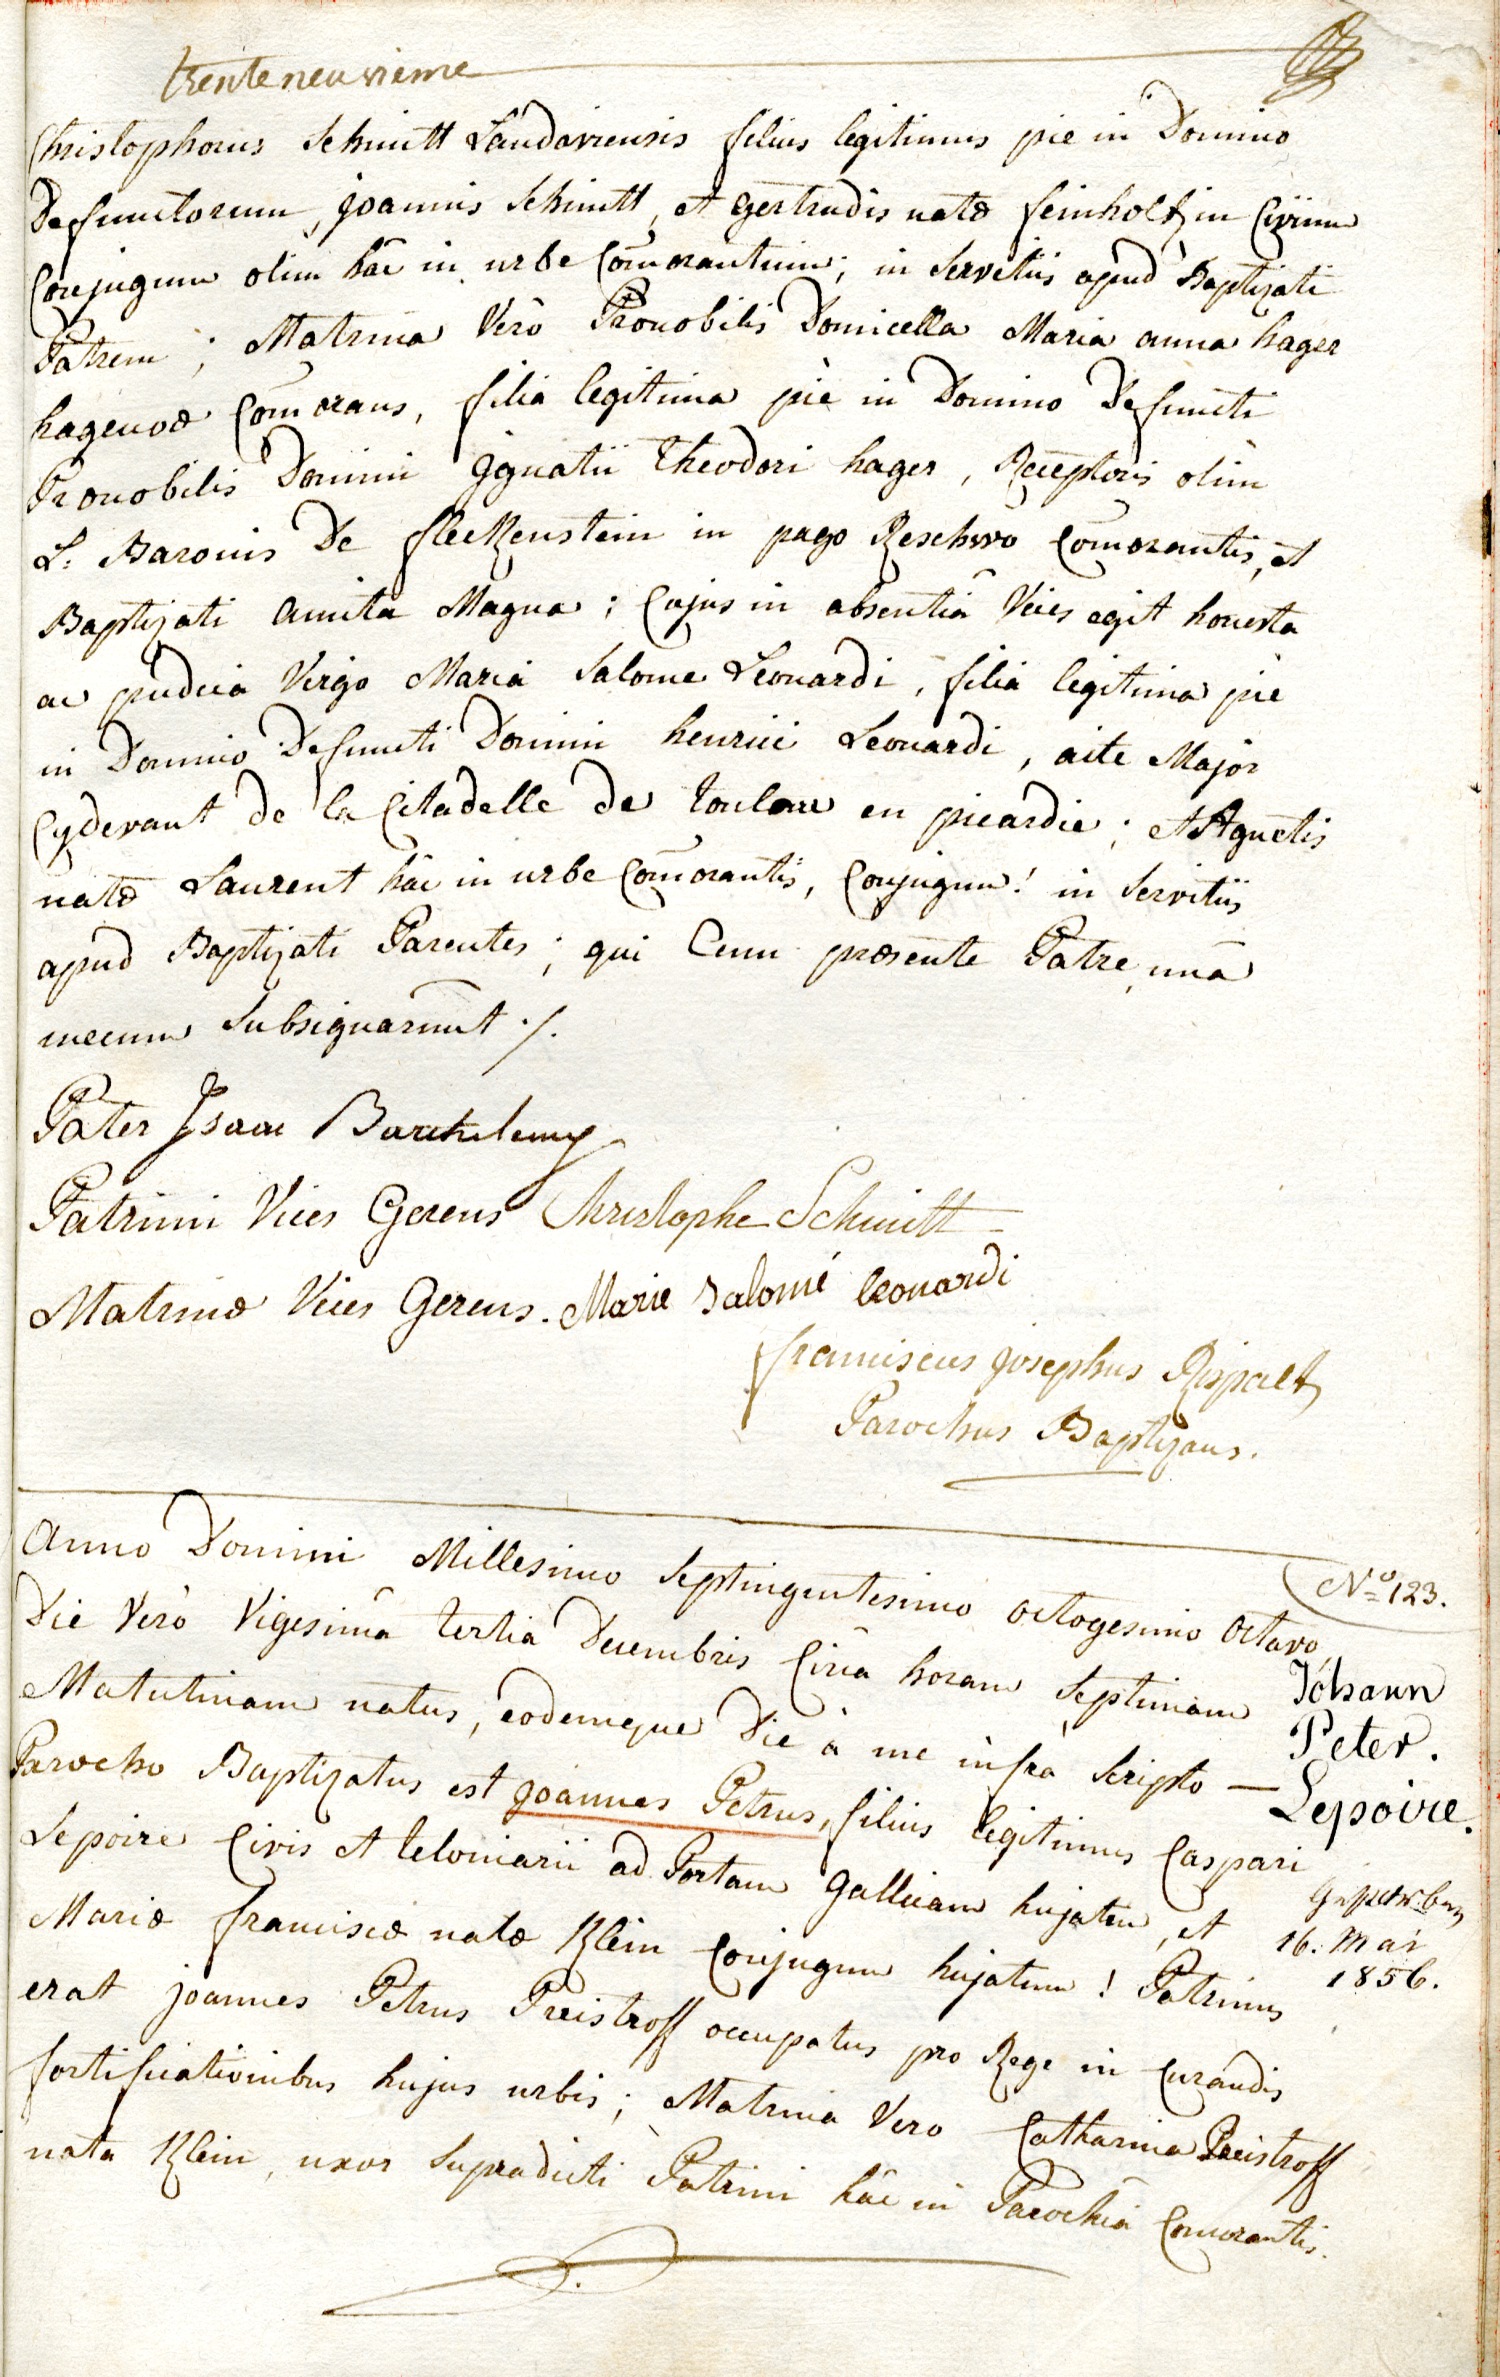 trenteneuvieme
Christophorus Schmitt Landaviensis filius legitimus pie in Domino
Defunctorum, joannis Schmitt, et gertrudis natæ feinholtzin Civium
Conjugum olim hâc in urbe Com̄orantium; in Servitiis apud Baptizati
Patrem; Matrina Verò Prænobilis Domicella Maria anna hager
hagenoæ Com̄orans, filia legitima piè in Domino Defuncti
Prænobilis Domini Ignatii Theodori hager, Receptoris olim
L. Baronis De fleckenstein in pago Reschwo Com̄orantis, et
Baptizati amita Magna; Cujus in absentiâ Vices egit honesta
ac pudica Virgo Maria Salome Leonardi, filia legitima pie
in Domino Defuncti Domini henrici Leonardi, aite Major
Cydevant de la Citadelle de en picardie; et Agnetis
natæ Laurent hâc in urbe Com̄orantis, Conjugum! in Servitiis
apud Baptizati Parentes; qui Cum præsente Patre, unà
mecum Subsignarunt ./.
Pater Isaac Barthelemy
Patrini Vices Gerens Christophe Schmitt
Matrinæ Vices Gerens. Marie Salomé leonardi
franciscus josephus Rispalt
Parochus Baptizans.
Nº 123.
Anno Domini Millesimo Septingentesimo octogesimo octavo,
Die Verò Vigesimâ tertia Decembris Circa horam Septimam
Matutinam natus, eodemque Die à me infrà Scripto —
Parocho Baptizatus est joannes Petrus, filius legitimus Caspari
Lepoire Civis et teloniarii ad Portam gallicam hujatem, et
Mariæ franciscæ natæ Klein Conjugum hujatum! Patrinus
erat joannes Petrus Preistroff occupatus pro Rege in Curandis
fortificationibus hujus urbis; Matrina Vero Catharina Preistroff
nata Klein, uxor Supradicti Patrini hâc in Parochiâ Com̄orantis.
Johann
Peter.
Lepoire.
16. Mai
1856.